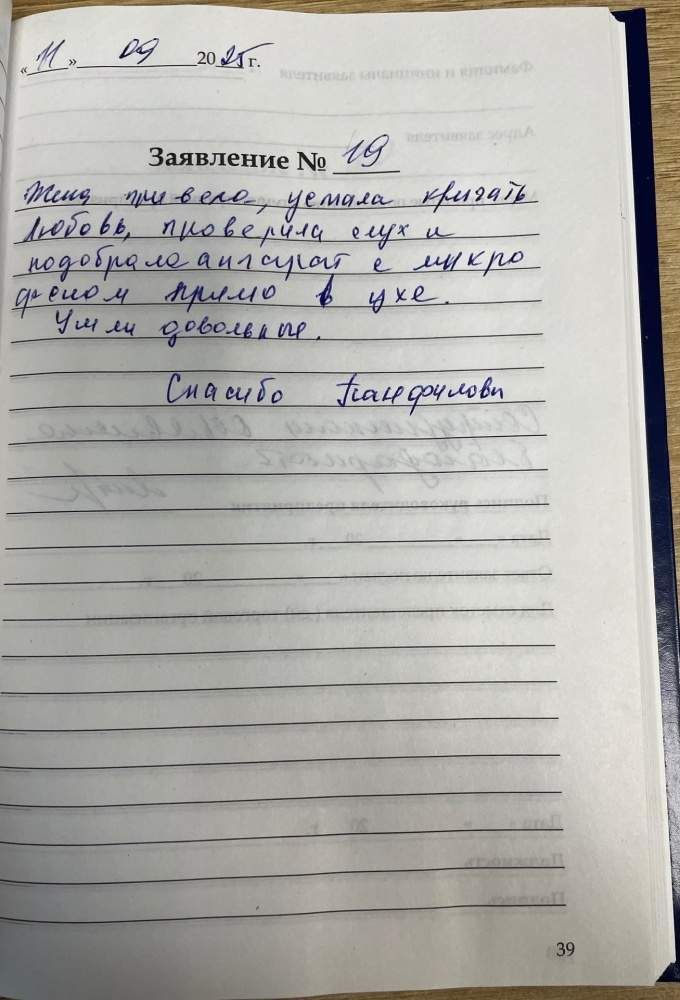 «11» 09 2025 г.
Заявление № 19
Жена привела, устала кричать
Любовь, проверила слух и
подобрала аппарат с микро
фоном прямо в ухе.
Ушли довольные.
Спасибо Панфиловы
39